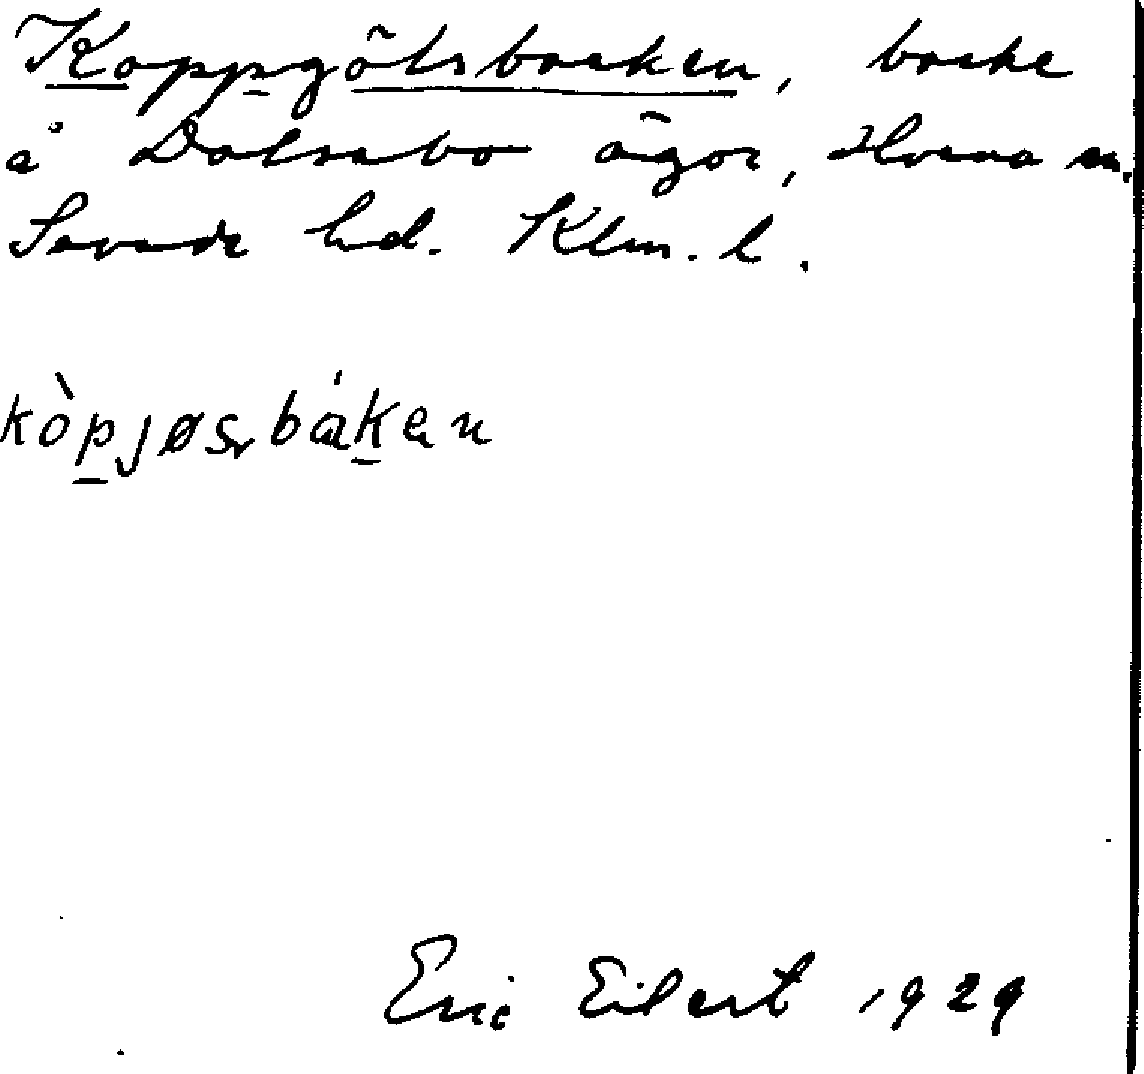 Koppgölsbacken, backe
å Dalsebo ägor, Hvena sn.
Sevede hd. Klm. l.
kòpjøsbákен
Eric Eilert 1929